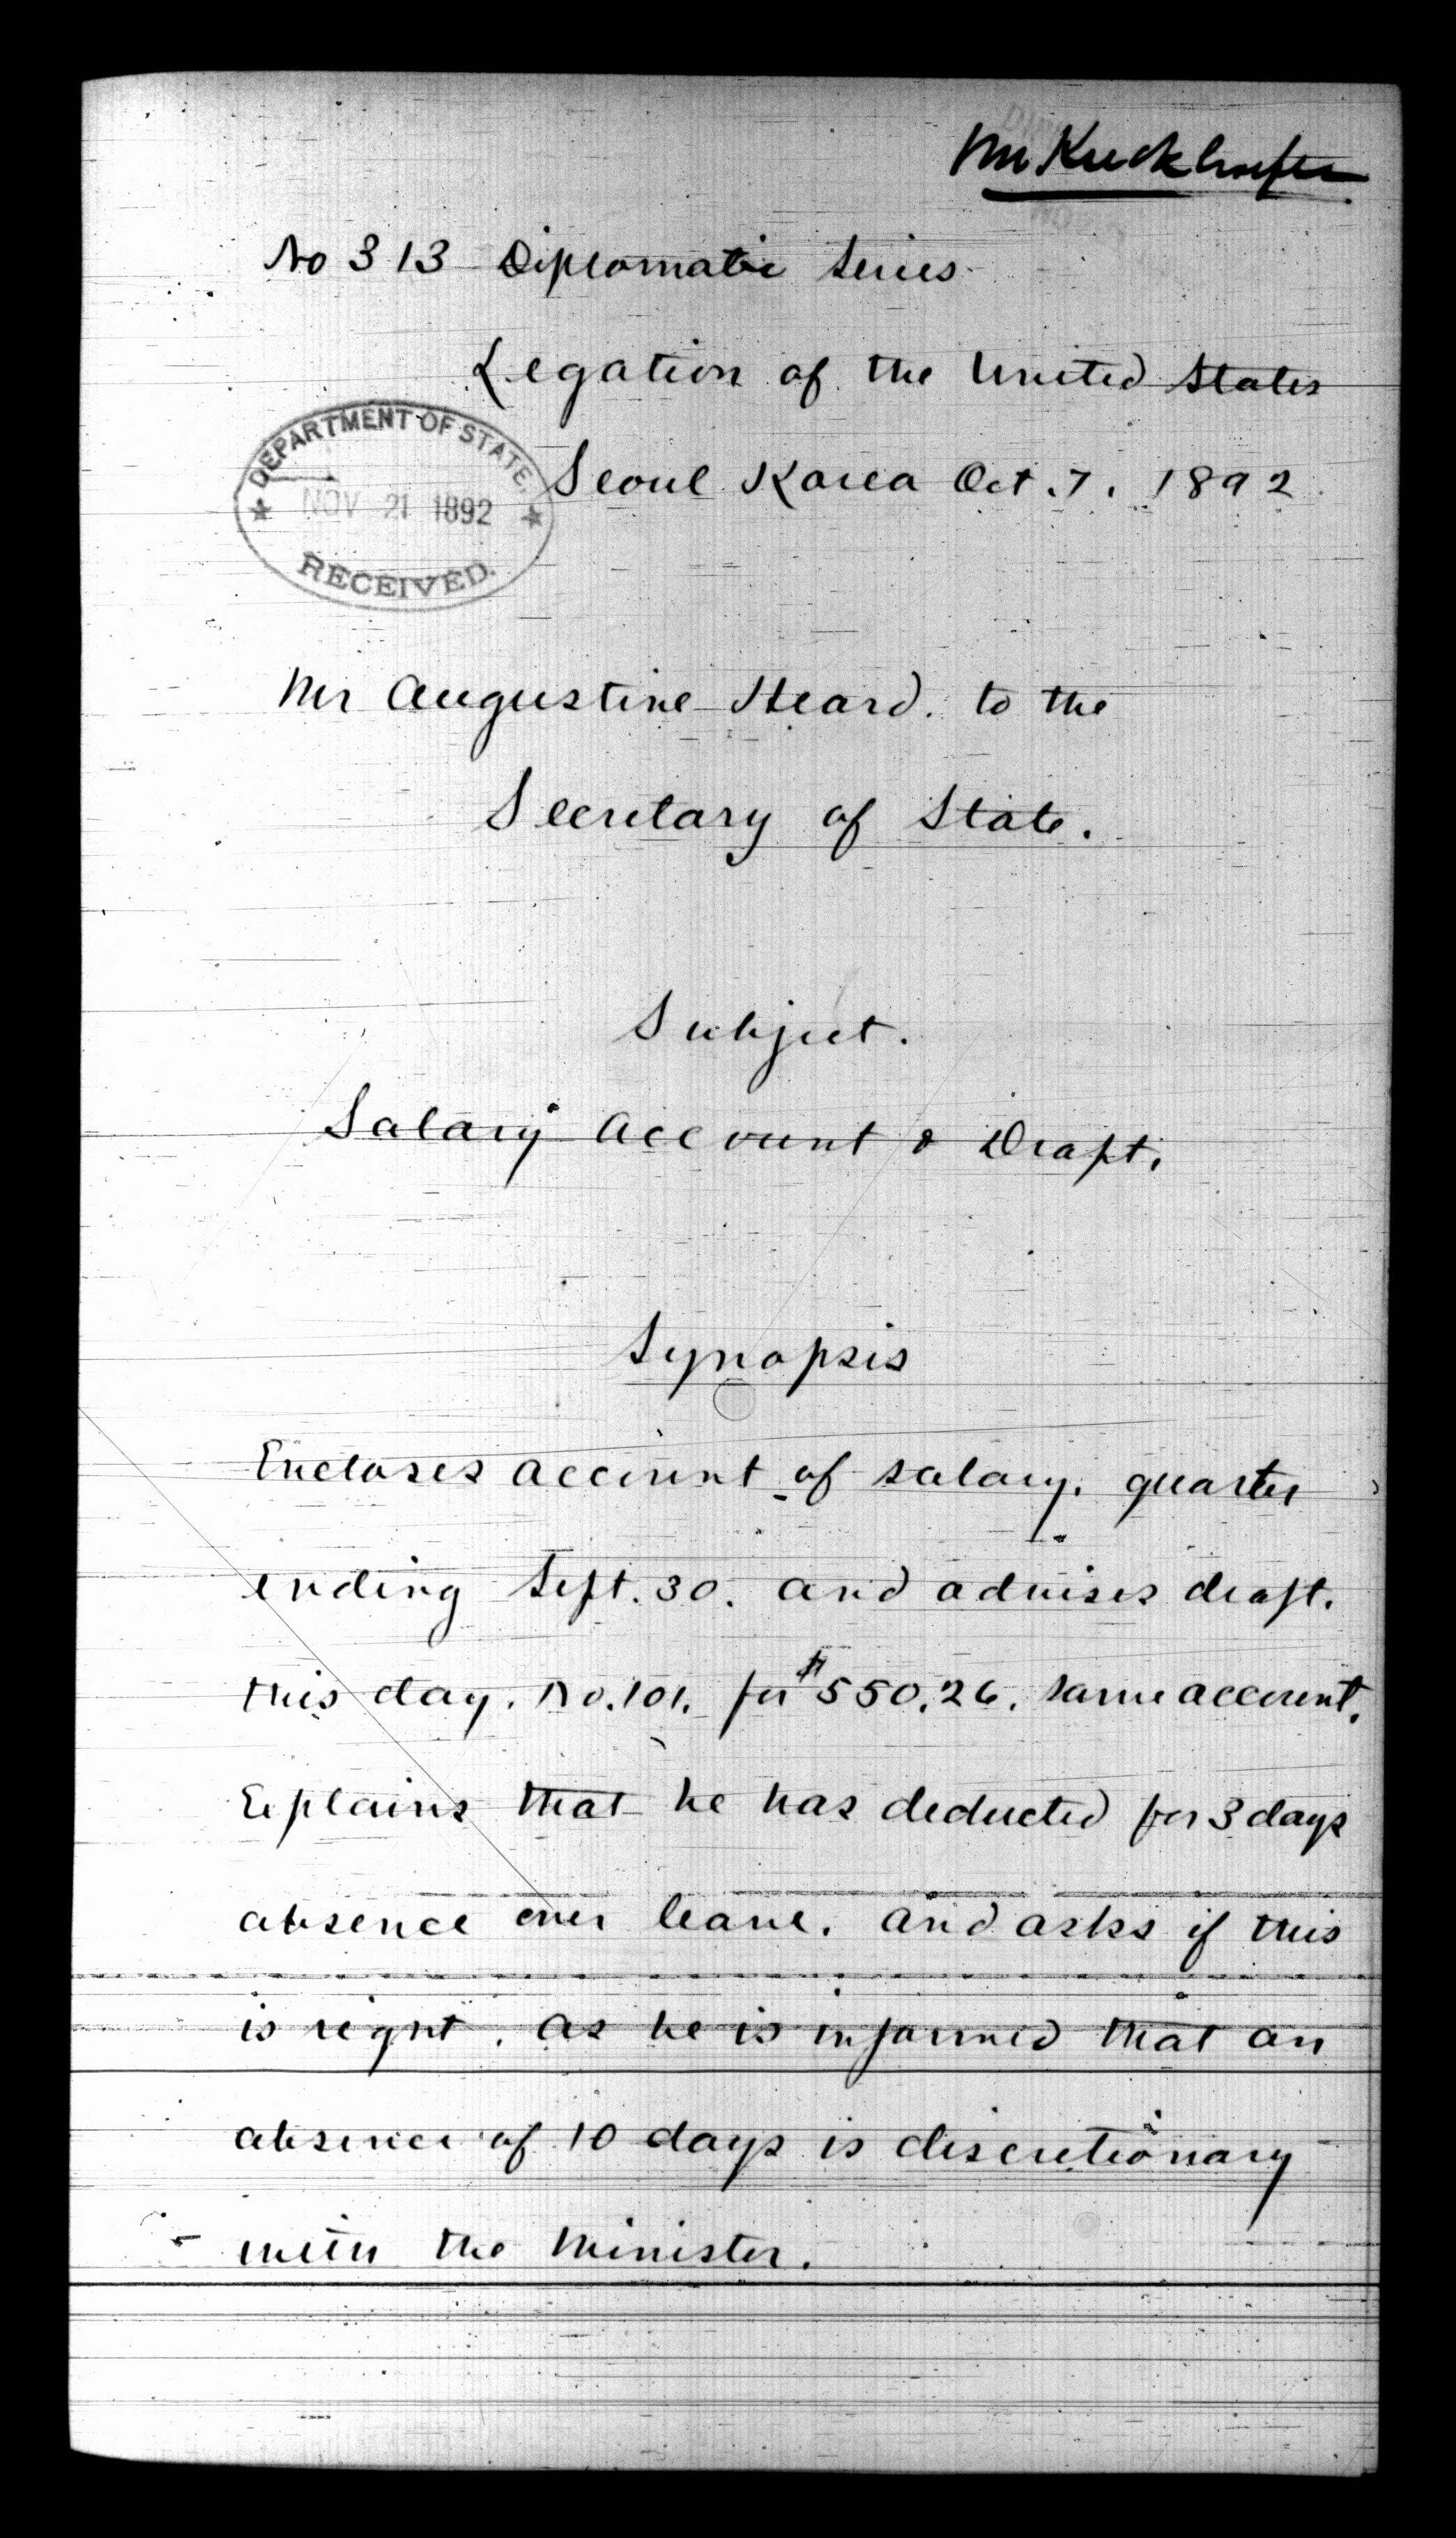 Mr Kieckhoefer
No 313 Diplomatic Series
Legation of the United States
DEPARTMENT OF STATE.
NOV 21 1892
RECEIVED.
Seoul Korea Oct. 7. 1892
Mr Augustine Heard. to the
Secretary of State.
Subject.
Salary Account & Draft.
Synopsis
Encloses account of salary. quarter
ending Sept. 30. and advises draft.
this day. No. 101. for $550.26. same account.
Explains that he has deducted for 3 days
absence over leave. and asks if this
is right. as he is informed that an
absence of 10 days is discretionary
with the Minister.